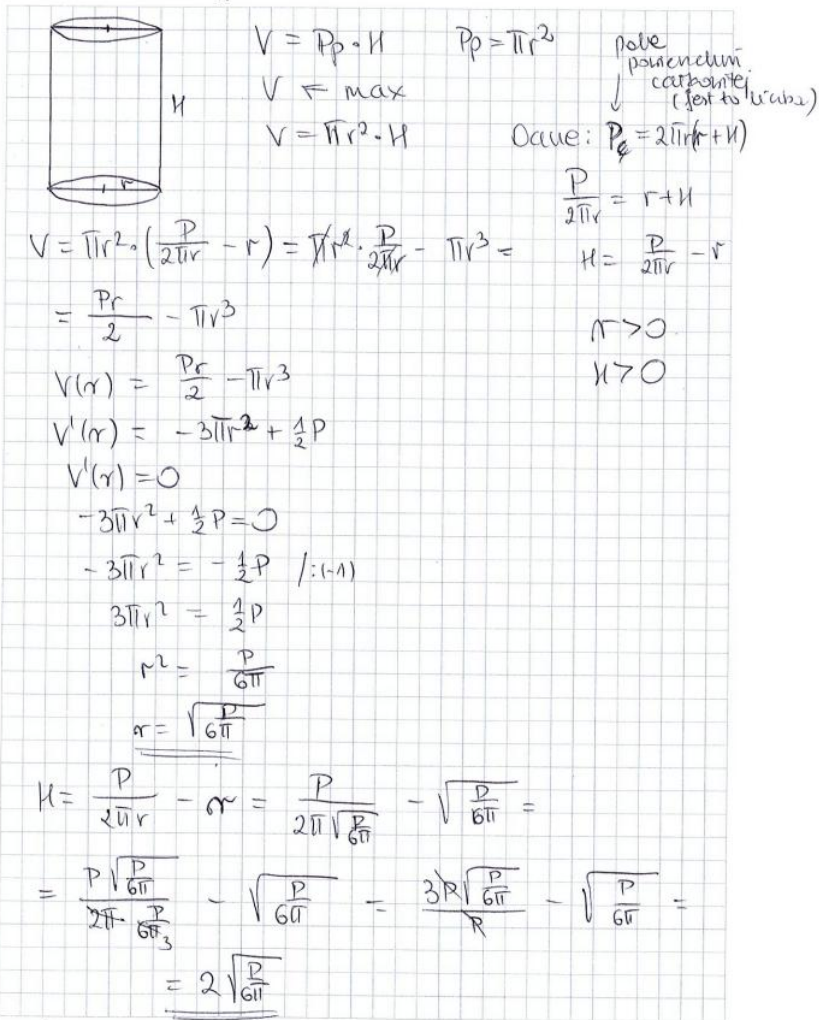 V = Pp · H   Pp = πr²
pole
powierzchni
całkowitej
(jest to liczba)
H
V = max
V = πr² · H   Dane: Pc = 2πr(r + H)
r
P/2πr = r + H
V = πr² · (P/2πr − r) = πr² · P/2πr − πr³ =   H = P/2πr − r
= Pr/2 − πr³   r > 0
V(r) = Pr/2 − πr³   H > 0
V'(r) = −3πr² + ½P
V'(r) = 0
−3πr² + ½P = 0
−3πr² = −½P /:(-1)
3πr² = ½P
r² = P/6π
r = √(P/6π)
H = P/2πr − r = P/(2π√(P/6π)) − √(P/6π) =
= P√(P/6π)/(2π · P/6π 3) − √(P/6π) = 3P√(P/6π)/P − √(P/6π) =
= 2√(P/6π)